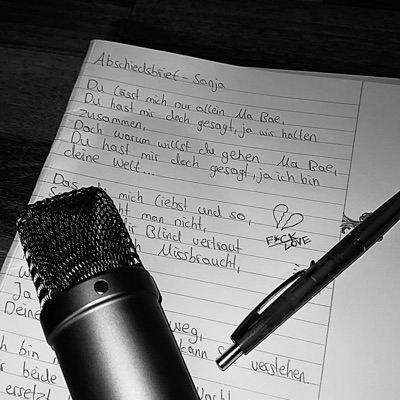 Abschiedsbrief - Sanja
Du lässt mich nur allein Ma Bae,
Du hast mir doch gesagt, ja wir halten
zusammen,
Doch warum willst du gehen Ma Bae,
Du hast mir doch gesagt, ja ich bin
deine Welt...
Das mich liebst und so,
man nicht,
Blind vertraut
Missbraucht,
F*CK
LOVE
Ja
Deine weg,
kann verstehen.
bin
beide
ersetzt